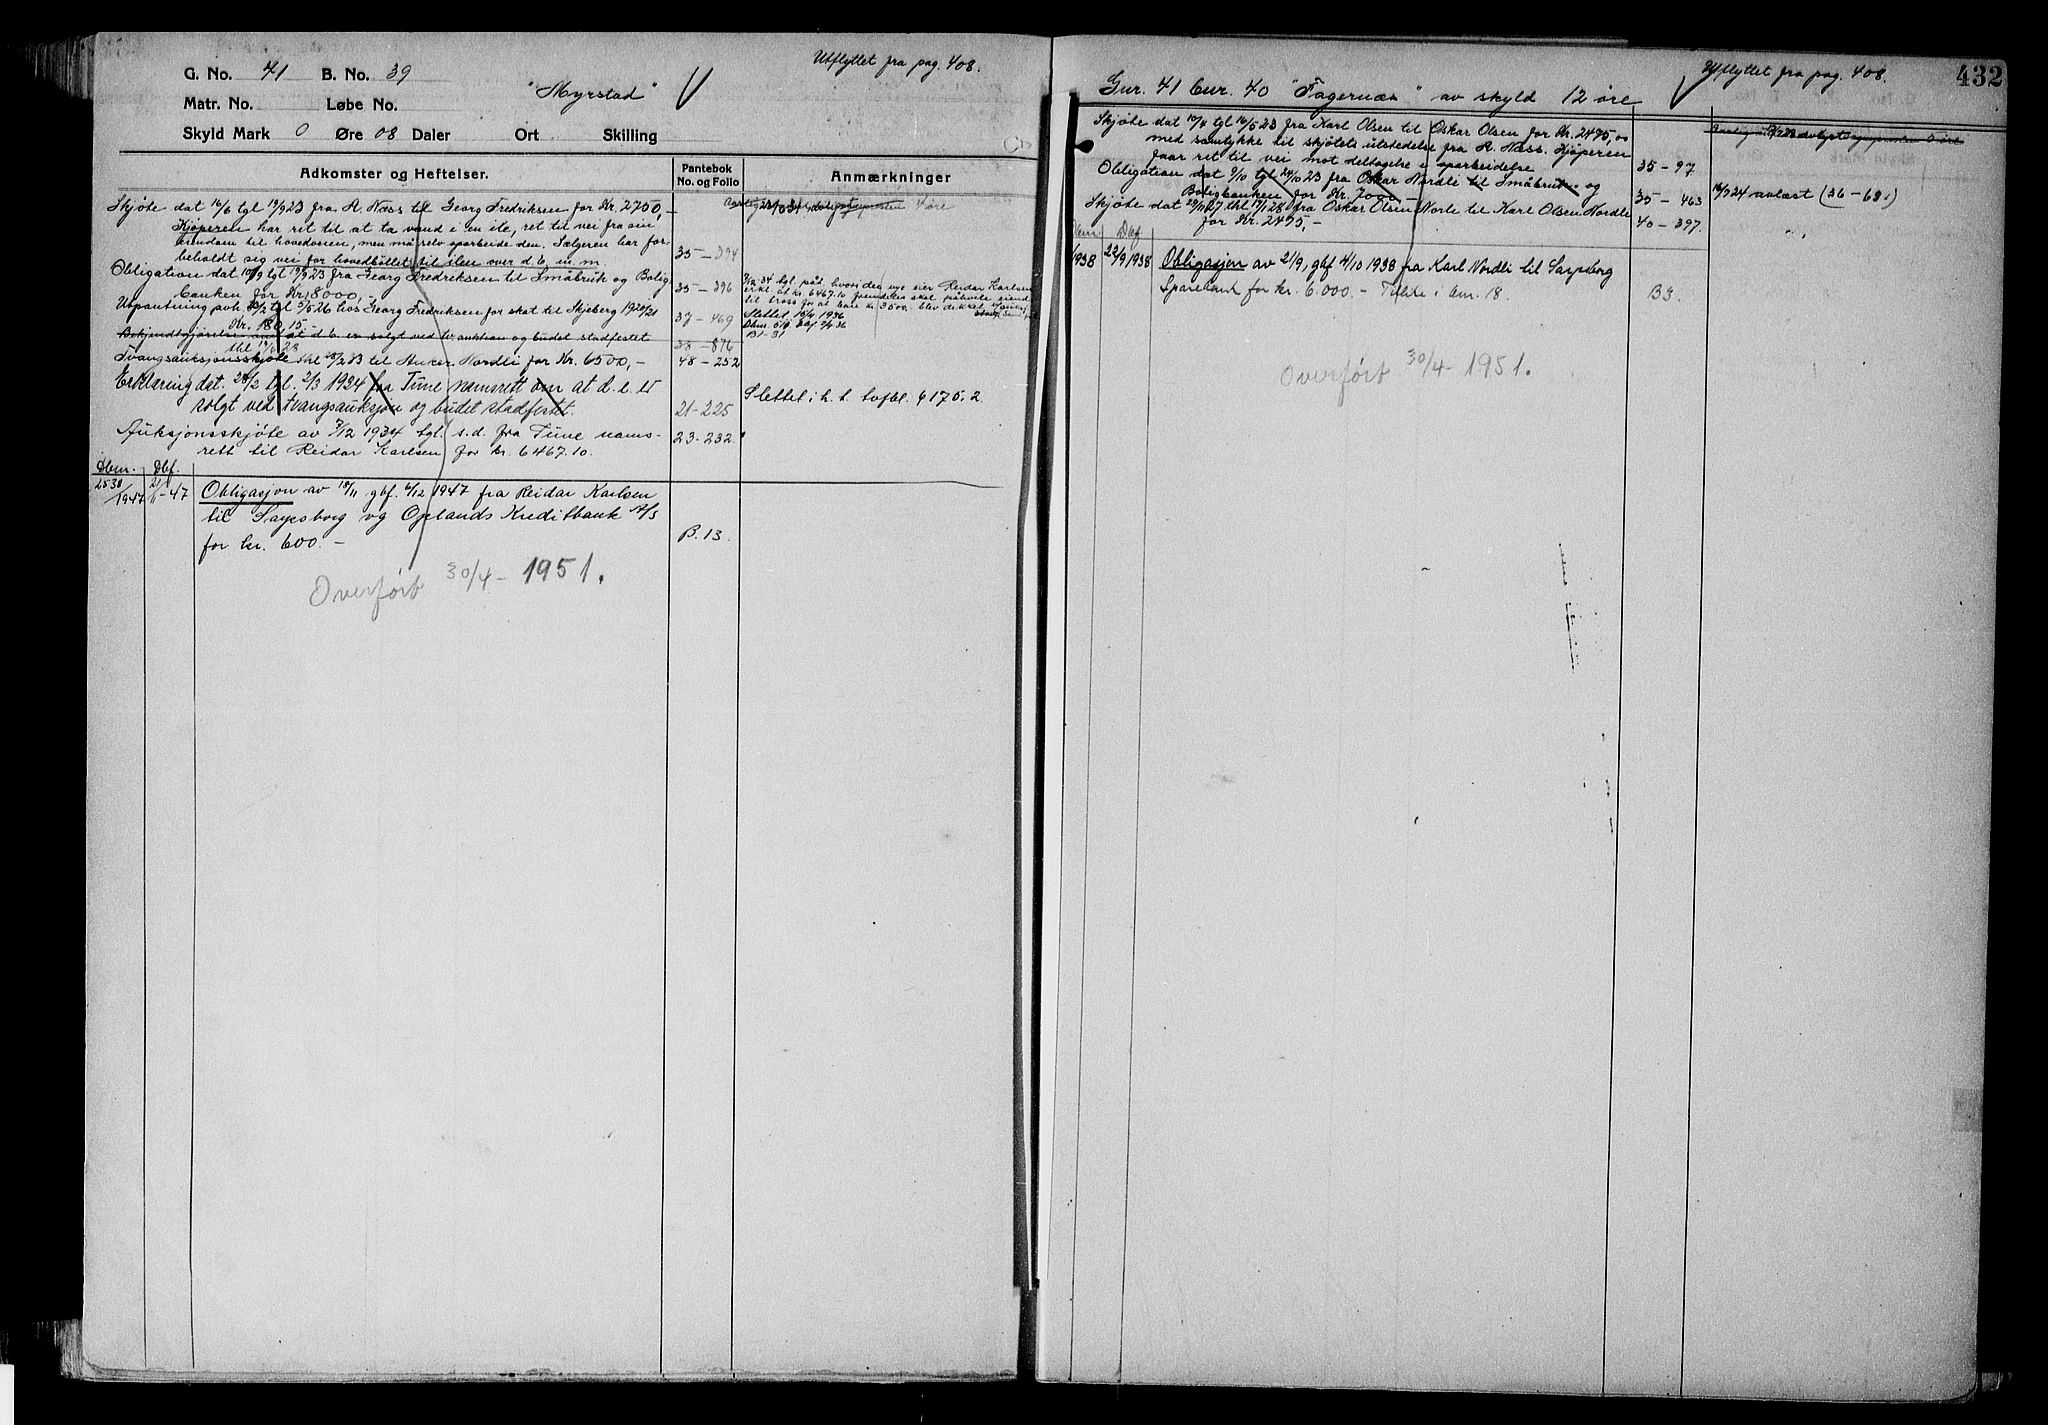 G. No. 41 B. No. 39
Utflyttet fra pag. 408.
"Myrstad"
Matr. No. Løbe No.
Skyld Mark 0 Øre 08 Daler Ort Skilling
Adkomster og Heftelser. Pantebok No. og Folio Anmærkninger
Skjøte dat 16/6 tgl 19/9 23 fra A. Næss til Georg Fredriksen for Kr. 2700,-
Kjøperen har ret til at ta vand i en ile, ret til vei fra sin
eiendom til hovedveien, men må selv oparbeide den. Sælgeren har for-
beholdt sig vei for hovedbøllet til ilen over d. b. m. m. 35-394
Obligation dat 10/9 tgl 19/9 23 fra Georg Fredriksen til Småbruk og Bolig
banken for Kr. 8000,- 35-396
Utpantning avh. 23/2 tgl 5/5 26 hos Georg Fredriksen for skat til Skjeberg 1920/21
Kr. 180,15- 37-469
at d. b. er solgt ved tv. auktion og budet stadfestet
38-876
Tvangsauksjonsskjøte thl 28/2 33 til Nordli for Kr. 6500,- 48-252
Erklæring dat. 24/2 tgl. 2/3 1934 fra Tune namsrett om at d. e. er
solgt ved tvangsauksjon og budet stadfestet. 21-225
Slettet i h. t. tvfbl. 6175.2
Auksjonsskjøte av 7/12 1934 tgl. s.d. fra Tune nams-
rett til Reidar Karlsen for kr. 6467.10. 23-232
4 øre
hvor den nye eier Reidar Karlsen
til tross for at bare kr. 3500.- blev dekket
Slettet 15/4 1936
B1-31
Dbnr. Dbf.
2538/1947 21/11-47
Obligasjon av 18/11 gbf. 6/12 1947 fra Reidar Karlsen
til Sarpsborg og Oplands Kreditbank A/S
for kr. 600.- B. 13.
Overført 30/4-1951.
Utflyttet fra pag. 408.
432
Gnr. 41 bnr. 40 "Fagernæs" av skyld 12 øre
Skjøte dat 10/4 tgl 16/5 23 fra Karl Olsen til Oskar Olsen for Kr. 2475,00
med samtykke til skjøtets utstedelse fra A. Næss. Kjøperen
faar ret til vei mot deltagelse i oparbeidelse 35-97
Obligation dat 9/10 tgl 24/10 23 fra Oskar Nordli til Småbruk og
Boligbanken for Kr. 7000,- 35-463
16/9 24 avlæst (36-681)
Skjøte dat 29/11 27 thl 17/1 28 fra Oskar Olsen Norli til Karl Olsen Nordli
for Kr. 2475,- 40-397.
Dbnr. Dbf
1938 22/9 1938
Obligasjon av 21/9, gbf 4/10 1938 fra Karl Nordli til Sarpsborg
Sparebank for kr. 6.000.- Tilste i bnr. 18. B3.
Overført 30/4-1951.